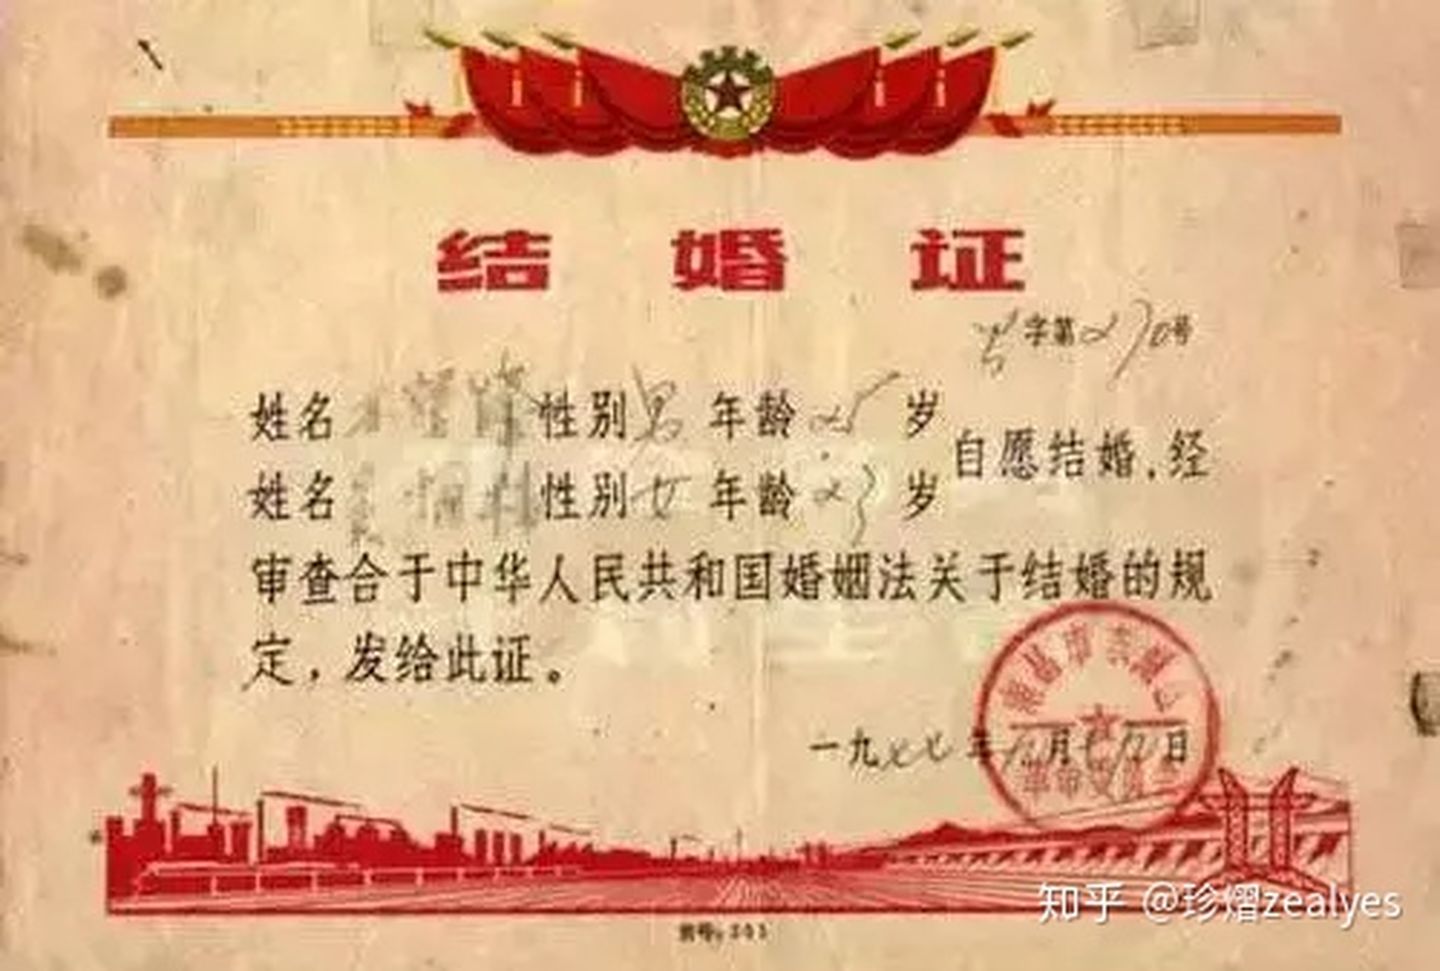 结婚证
字第270号
姓名 性别男 年龄25岁
姓名 性别女 年龄23岁
自愿结婚,经
审查合于中华人民共和国婚姻法关于结婚的规
定,发给此证。
一九七七年 月 日
知乎 @珍熠zealyes